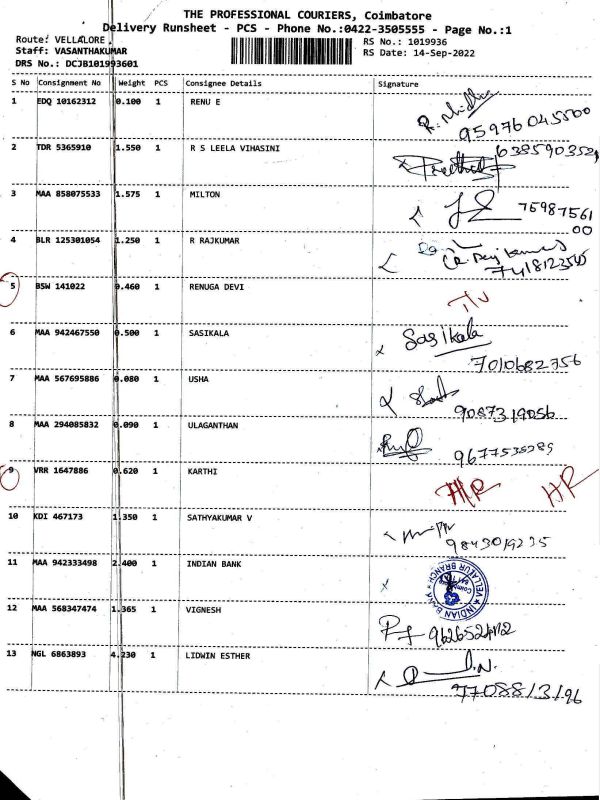 THE PROFESSIONAL COURIERS, Coimbatore
Delivery Runsheet - PCS - Phone No.:0422-3505555 - Page No.:1
Route: VELLALORE, RS No.: 1019936
Staff: VASANTHAKUMAR RS Date: 14-Sep-2022
DRS No.: DCJB101993601
S No Consignment No Weight PCS Consignee Details Signature
1 EDQ 10162312 0.100 1 RENU E
95976 045500
2 TDR 5365910 1.550 1 R S LEELA VIHASINI
3 MAA 858075533 1.575 1 MILTON
75987561
00
4 BLR 125301054 1.250 1 R RAJKUMAR
5 BSW 141022 0.460 1 RENUGA DEVI
6 MAA 942467550 0.500 1 SASIKALA Sasikala
7010682756
7 MAA 567695886 0.080 1 USHA
9087319056
8 MAA 294085832 0.090 1 ULAGANTHAN
9677535289
9 VRR 1647886 0.620 1 KARTHI HR
10 KDI 467173 1.350 1 SATHYAKUMAR V
9843019235
11 MAA 942333498 2.400 1 INDIAN BANK INDIAN BANK
12 MAA 568347474 1.365 1 VIGNESH
13 NGL 6863893 4.230 1 LIDWIN ESTHER
7708813196